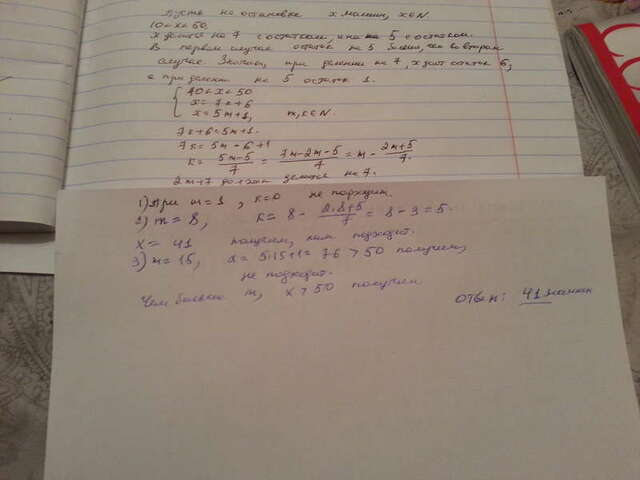 Пусть на остановке x машин, x∈N.
10<x<50
x делится на 7 с остатком, и на 5 с остатком.
В первом случае остаток на 5 больше, чем во втором
случае. Значит, при делении на 7, x даёт остаток 6,
а при делении на 5 остаток 1.
40<x<50
x=7к+6
x=5m+1, m,к∈N.
7к+6=5m+1.
7к=5m-6+1
к=(5m-5)/7=(7m-2m-5)/7=m-(2m+5)/7.
2m+7 должно делится на 7.
1) При m=1, к=0 не подходит.
2) m=8, к=8-(2·8+5)/7=8-3=5.
x=41 подходит.
3) m=15, x=5·15+1=76>50 получим,
не подходит.
Чем больше m, x>50 получим
Ответ: 41 машин